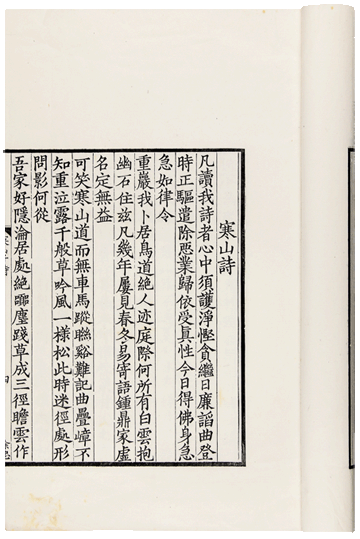 寒山詩
凡讀我詩者心中須護淨慳貪繼日廉諂曲登
時正驅遣除惡業歸依受真性今日得佛身急
急如律令
重巖我卜居鳥道絶人迹庭際何所有白雲抱
幽石住茲凡幾年屢見春冬易寄語鍾鼎家虛
名定無益
可笑寒山道而無車馬蹤聯谿難記曲疊嶂不
知重泣露千般草吟風一様松此時迷徑處形
問影何從
吾家好隱淪居處絶囂塵踐草成三徑瞻雲作
四